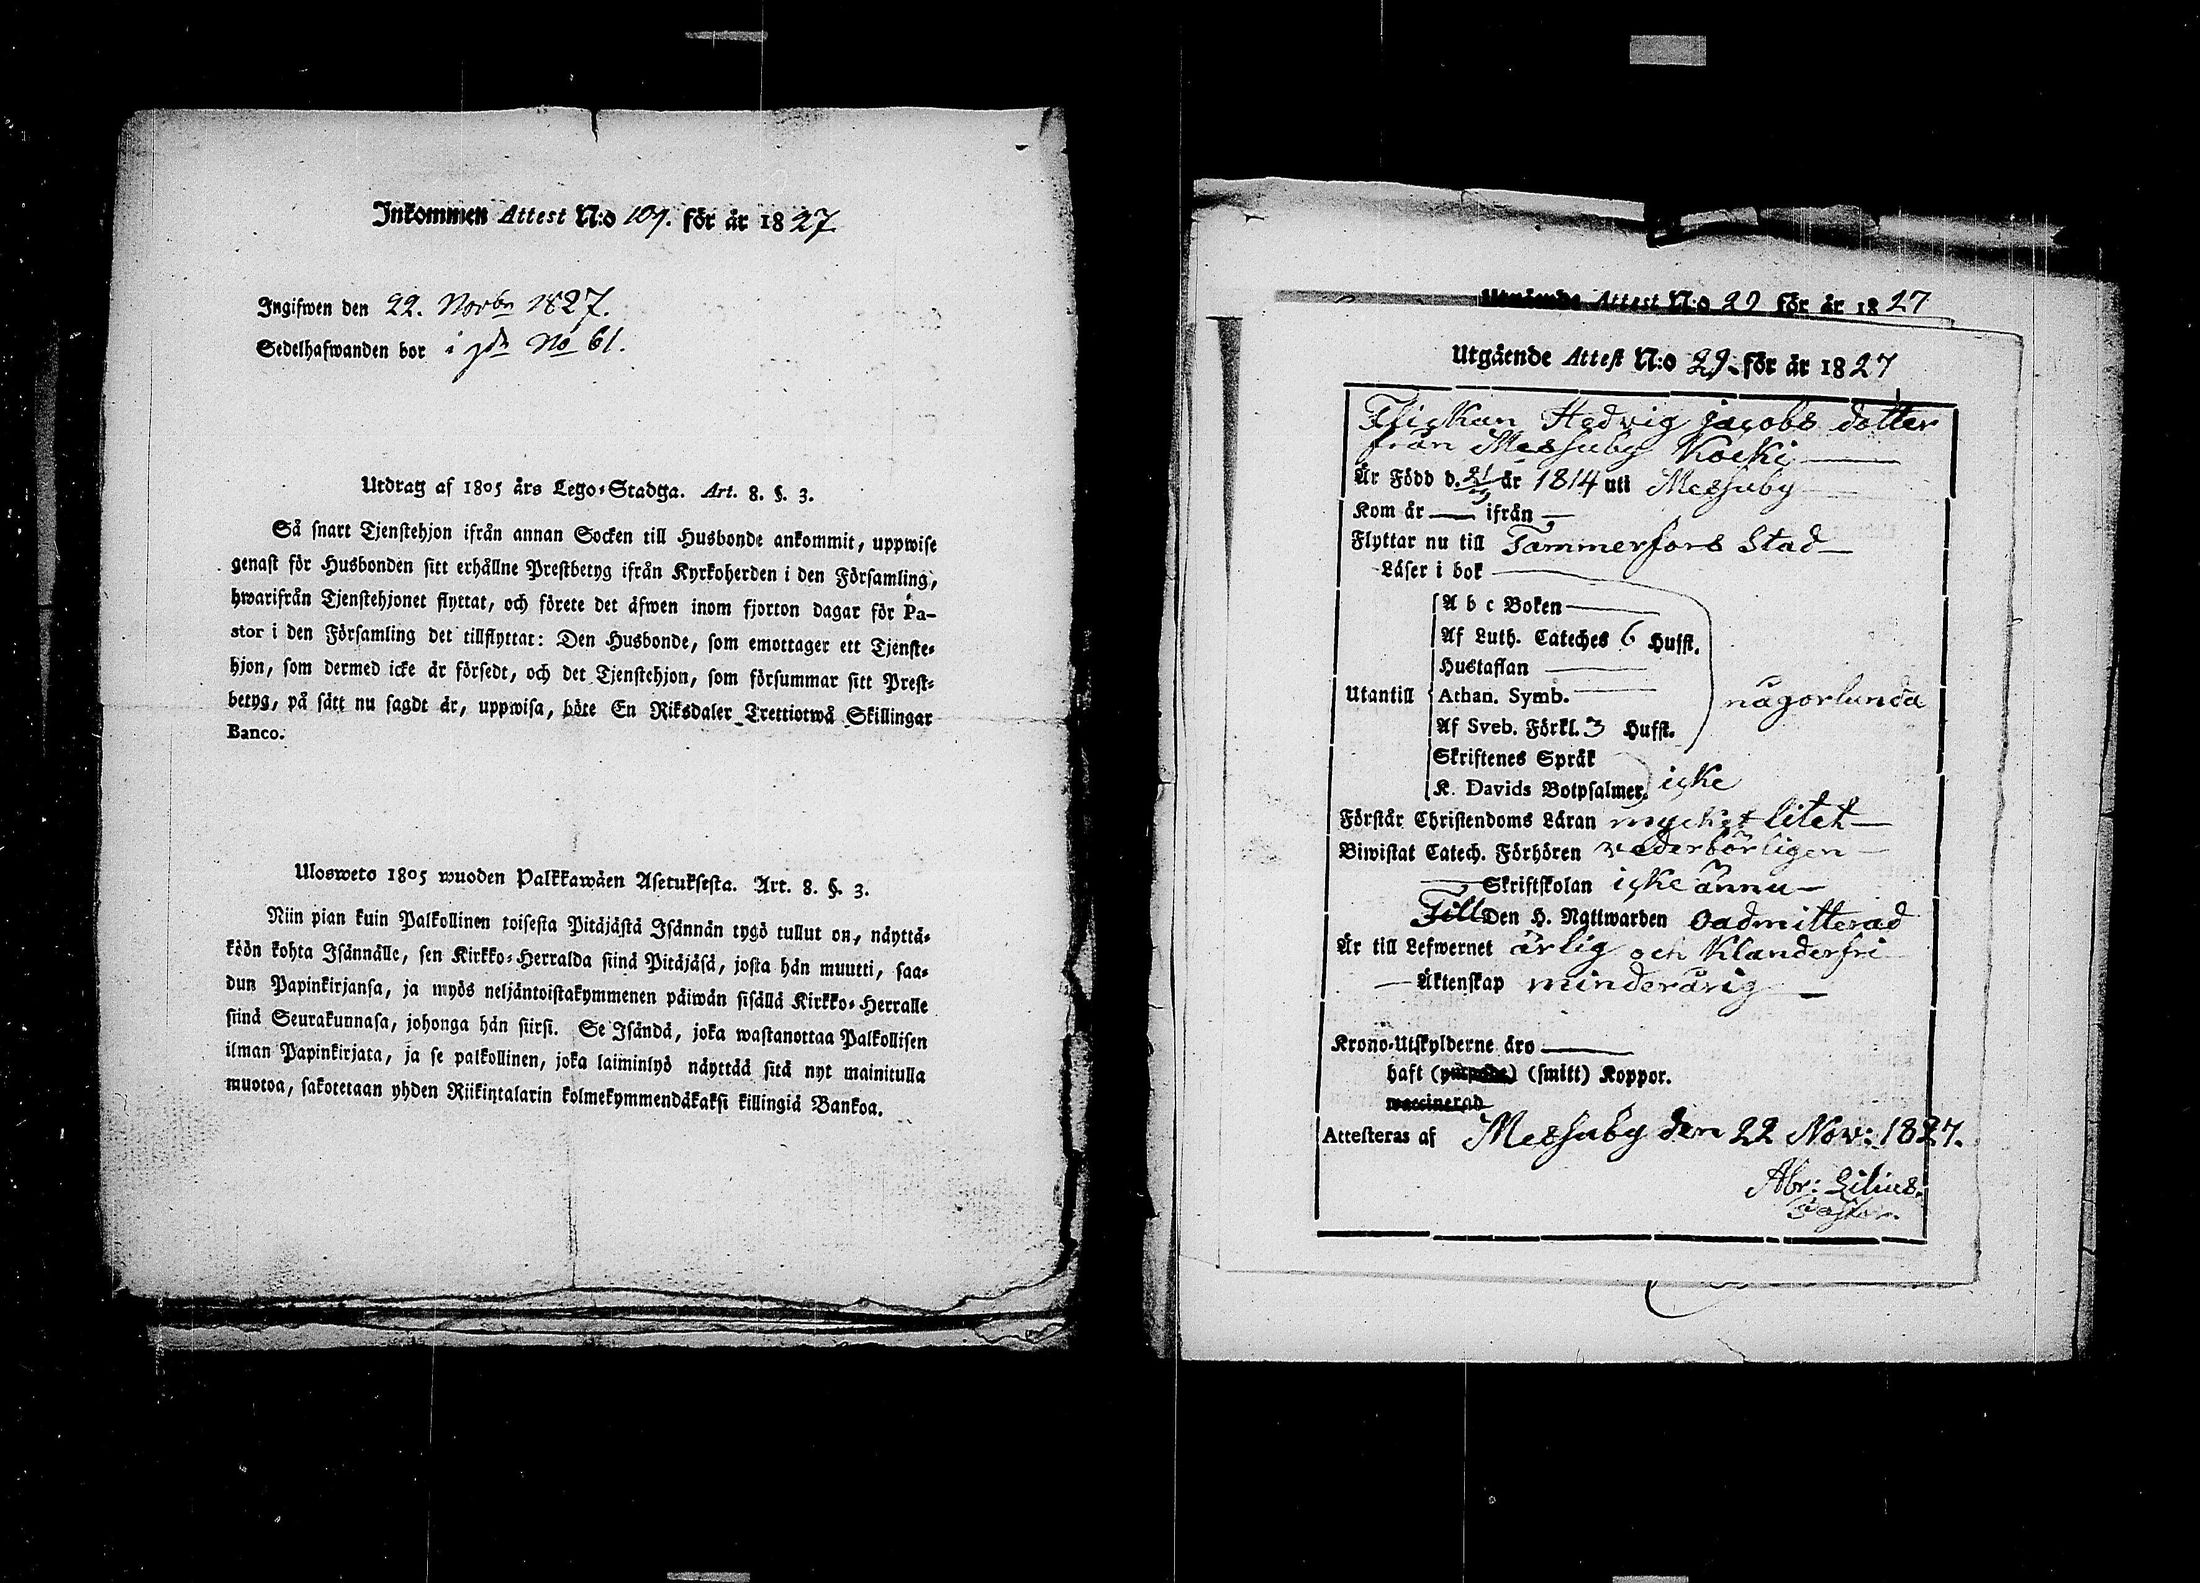 Inkommen Attest N:o 107. för år 1827
Ingifwen den 22. Novbr 1827.
Sedelhafwanden bor i gdn No 61.
Utdrag af 1805 års Lego-Stadga. Art. 8. §. 3.
Så snart Tjenstehjon ifrån annan Socken till Husbonde ankommit, uppwise
genast för Husbonden sitt erhållne Prestbetyg ifrån Kyrkoherden i den Församling,
hwarifrån Tjenstehjonet flyttat, och förete det äfwen inom fjorton dagar för Pa-
stor i den Församling det tillflyttat: Den Husbonde, som emottager ett Tjenste-
hjon, som dermed icke är försedt, och det Tjenstehjon, som försummar sitt Prest-
betyg, på sätt nu sagdt är, uppwisa, böte En Riksdaler Trettiotwå Skillingar
Banco.
Ulosweto 1805 wuoden Palkkawäen Asetuksesta. Art. 8. §. 3.
Niin pian kuin Palkollinen toisesta Pitäjästä Isännän tygö tullut on, näyttä-
köön kohta Isännälle, sen Kirkko-Herralda siinä Pitäjäsä, josta hän muutti, saa-
dun Papinkirjansa, ja myös neljäntoistakymmenen päiwän sisällä Kirkko-Herralle
siinä Seurakunnasa, johonga hän siirsi. Se Isändä, joka wastanottaa Palkollisen
ilman Papinkirjata, ja se palkollinen, joka laiminlyö näyttää sitä nyt mainitulla
muotoa, sakotetaan yhden Riikintalarin kolmekymmendäkaksi killingiä Bankoa.
Utgående Attest N:o 29 för år 1827
Utgående Attest N:o 29. för år 1827
Flickan Hedvig Jacobs dotter
från Messuby Kocki
Är Född d. 21/9 år 1814 uti Messuby
Kom år — ifrån —
Flyttar nu till Tammerfors Stad
Läser i bok
A b c Boken
Af Luth. Cateches 6 Hufst.
Hustaflan
Utantill Athan. Symb. någorlunda
Af Sveb. Förkl. 3 Hufst.
Skriftenes Språk
K. Davids Botpsalmer. icke
Förstår Christendoms Läran mycket litet
Biwistat Catech. Förhören vederbörligen
Skriftskolan icke ännu
Till Den H. Nattwarden oadmitterad
Är till Lefwernet ärlig och Klanderfri
Äktenskap minderårig
Krono-Utskylderne äro
haft (ympade) (smitt) Koppor.
waccinerad
Attesteras af Messuby den 22 Nov: 1827.
Abr: Lilius.
Pastor.